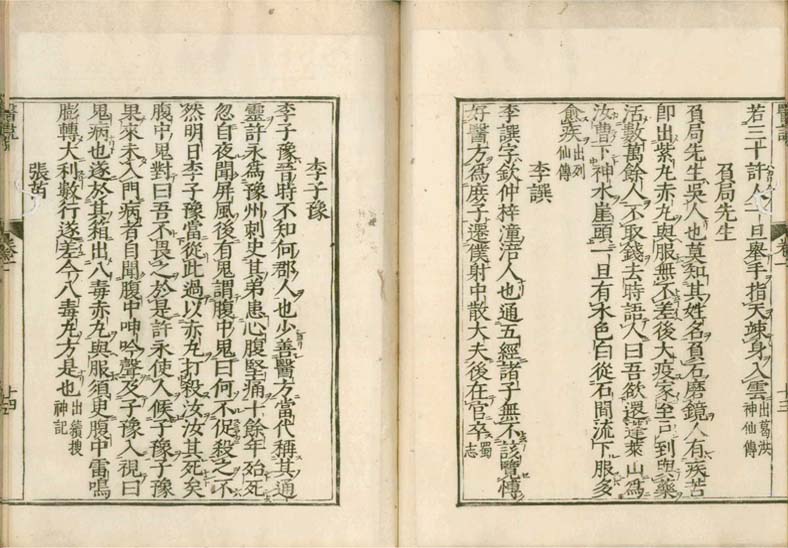 醫說
卷一
十三
若三十許人一旦舉手指天竦身入雲出葛洪神仙傳
負局先生
負局先生吳人也莫知其姓名負石磨鏡人有疾苦
即出紫丸赤丸與服無不差後大疫家至戶到與藥
活數萬餘人不取錢去時語人曰吾欲還蓬萊山爲
汝曹下神水崖頭一旦有水色白從石間流下服多
愈疾出列仙傳
李譔
李譔字欽仲梓潼涪人也通五經諸子無不該覽博
好醫方爲庶子遷僕射中散大夫後在官卒蜀志
李子豫
李子豫晉時不知何郡人也少善醫方當代稱其通
靈許永爲豫州刺史其弟患心腹堅痛十餘年殆死
忽自夜聞屏風後有鬼謂腹中鬼曰何不促殺之不
然明日李子豫當從此過以赤丸打殺汝汝其死矣
腹中鬼對曰吾不畏之於是許永使人候子豫子豫
果來未入門病者自聞腹中呻吟聲及子豫入視曰
鬼病也遂於其箱出八毒赤丸與服須臾腹中雷鳴
膨轉大利數行遂差今八毒丸方是也出續搜神記
張苗
醫說
卷一
十四